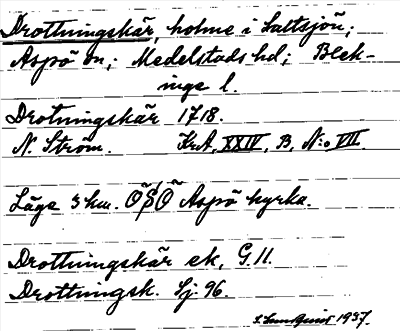 Drottningskär, holme i Saltsjön;
Aspö sn; Medelstads hd; Blek-
inge l.
Drotningskär 1718.
N. Ström. KrA, XXIV, B, N:o VII.
Läge 3 km. ÖSÖ Aspö kyrka.
Drottningskär ek, G. 11.
Drottningsk. Sj. 96.
1937.